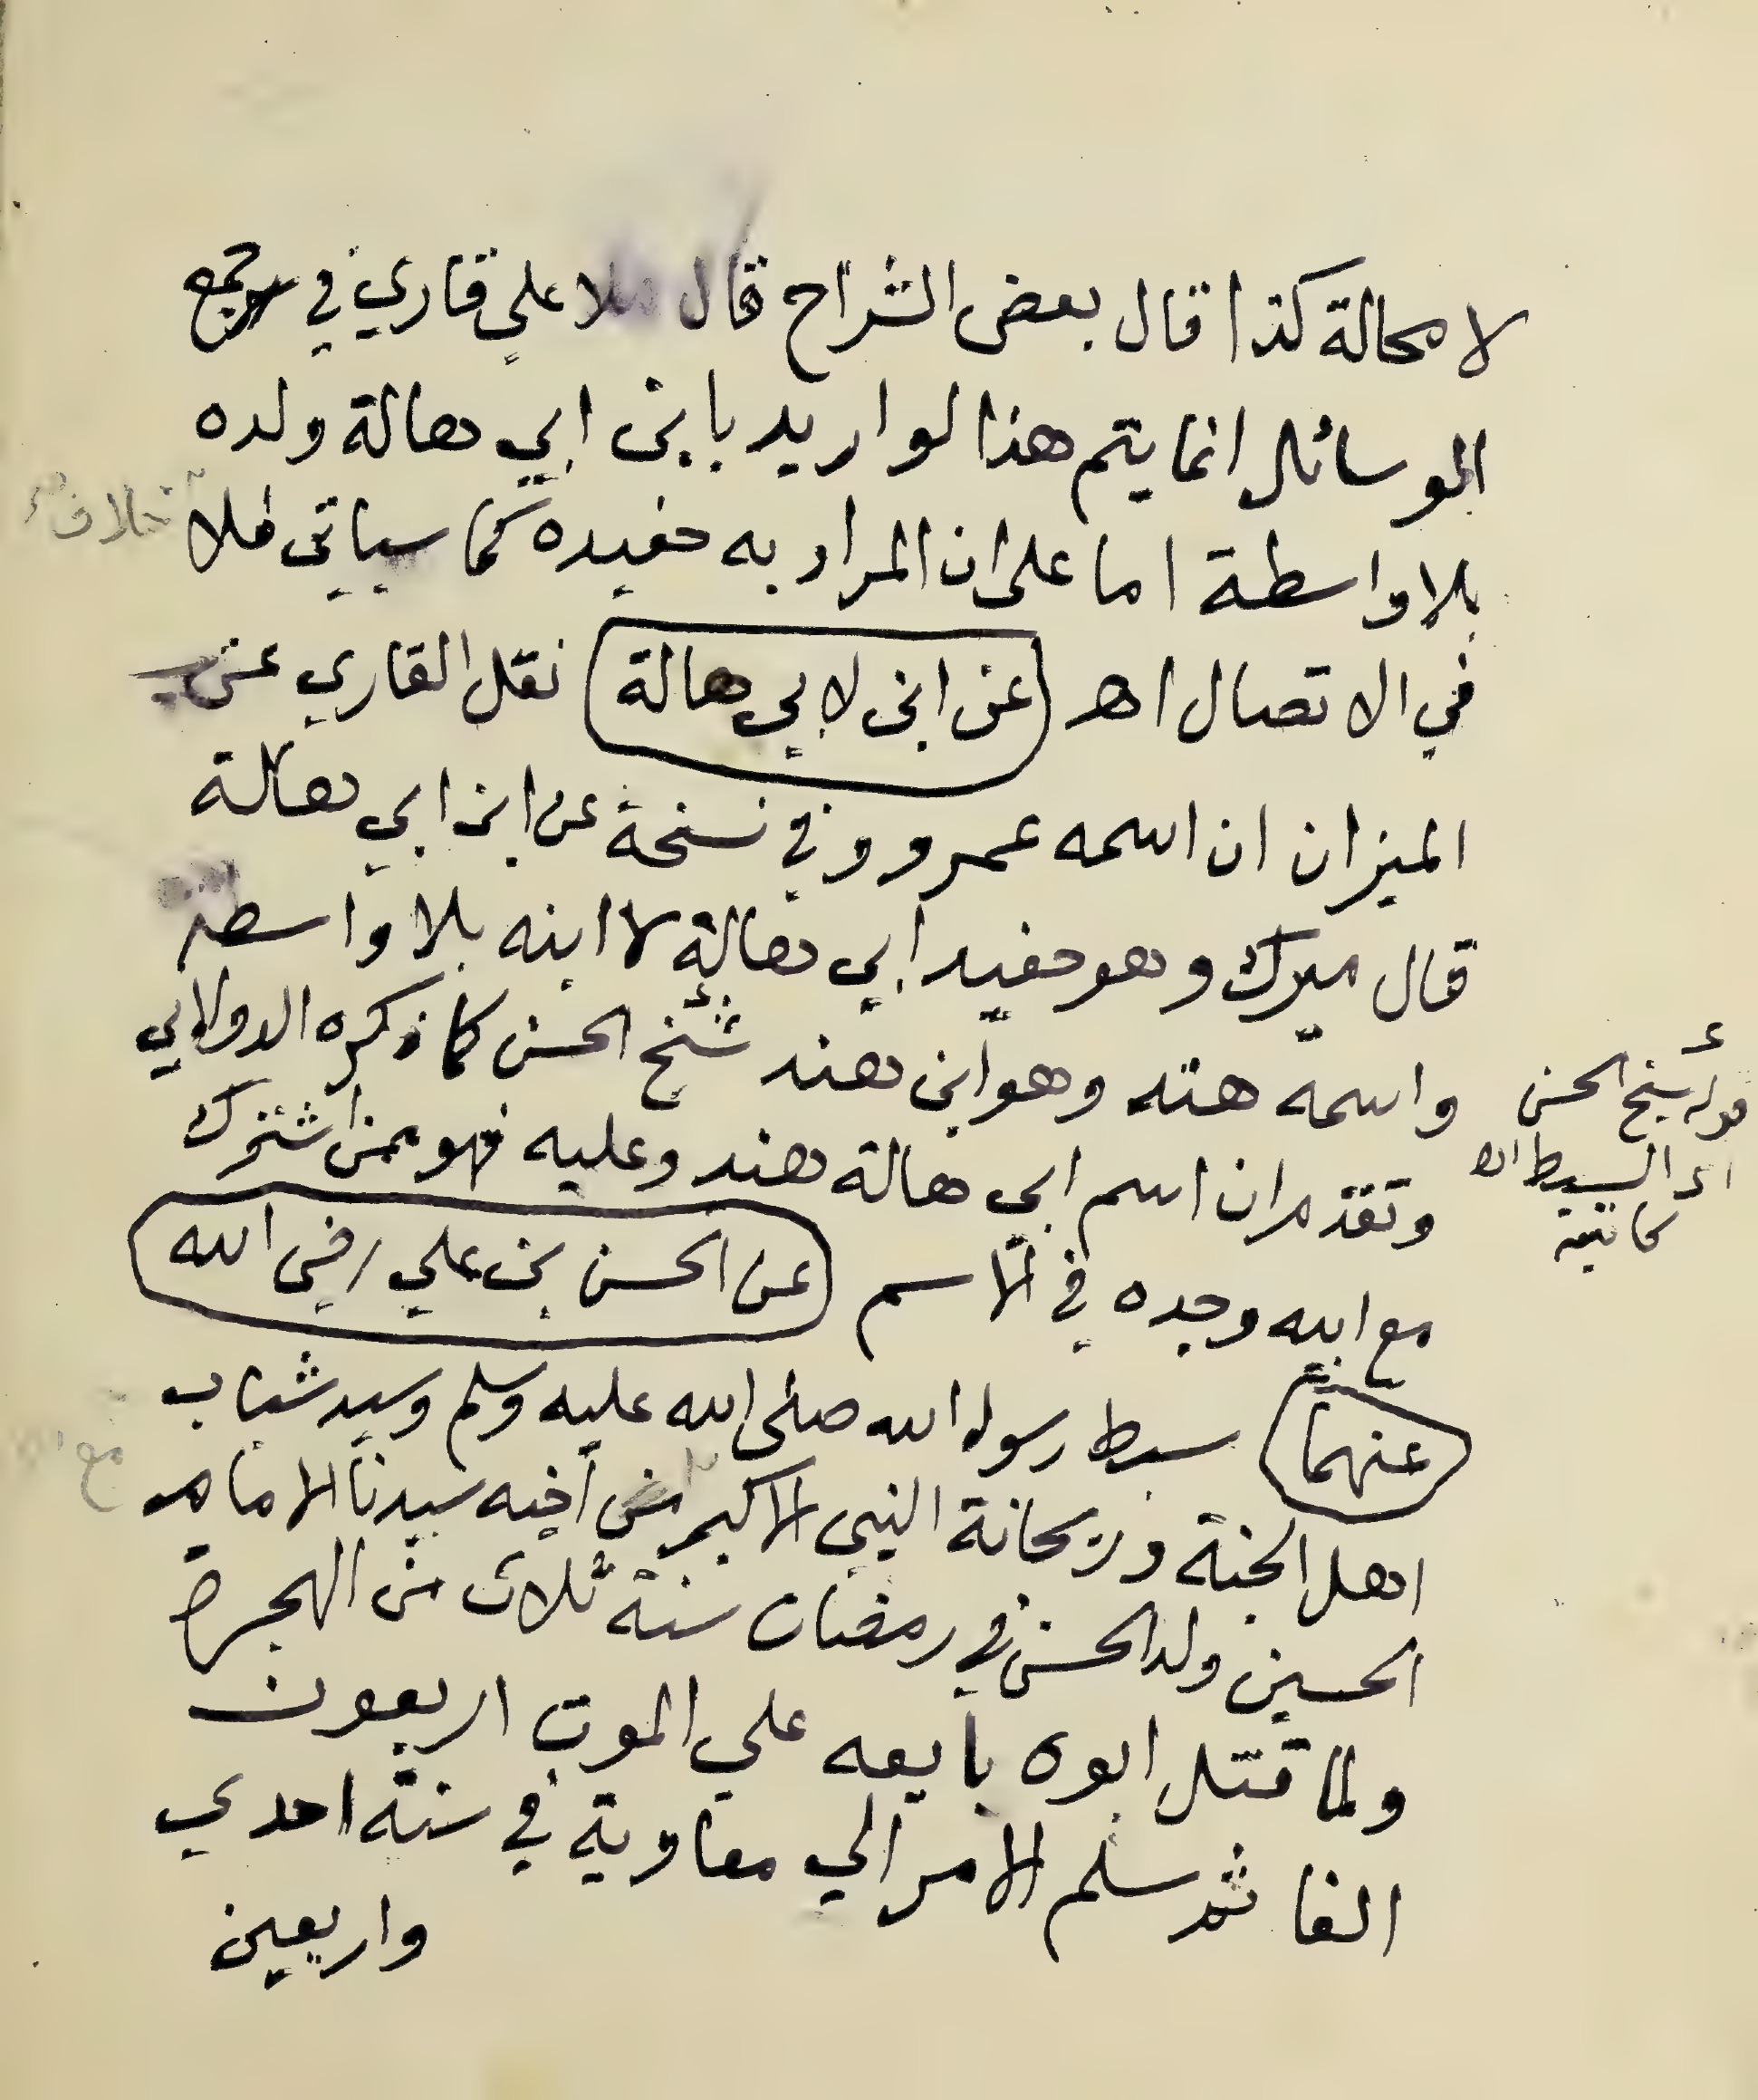 لا محالة كذا قال بعض الشراح قال ملا علي قاري في جمع
الوسائل انما يتم هذا لو اريد بابن ابي هالة ولده
بلا واسطة اما على ان المراد به حفيده كما سياتى فلا
خلاف
في الاتصال اهـ (عن ابن لابي هالة) نقل القاري عن
الميزان ان اسمه عمرو وفي نسخة عن ابن ابي هالة
قال ميرك وهو حفيد ابي هالة لا ابنه بلا واسطة
واسمه هند وهو ابن هند شيخ الحسن كما ذكره الدولابي
وتقدم ان اسم ابي هالة هند وعليه فهو ممن اشترك
مع ابيه وجده في الاسم (عن الحسن بن علي رضى الله
عنهما) سبط رسول الله صلى الله عليه وسلم وسيد شباب
اهل الجنة وريحانة النبي الاكبر من أخيه سيدنا الامام
الحسين ولد الحسن في رمضان سنة ثلاث من الهجرة
ولما قتل ابوه بايعه علي الموت اربعون
الفا ثم سلم الامر الي معاوية في سنة احدي
واربعين
قوله شيخ الحسن
اي السبط اهـ
كاتبه